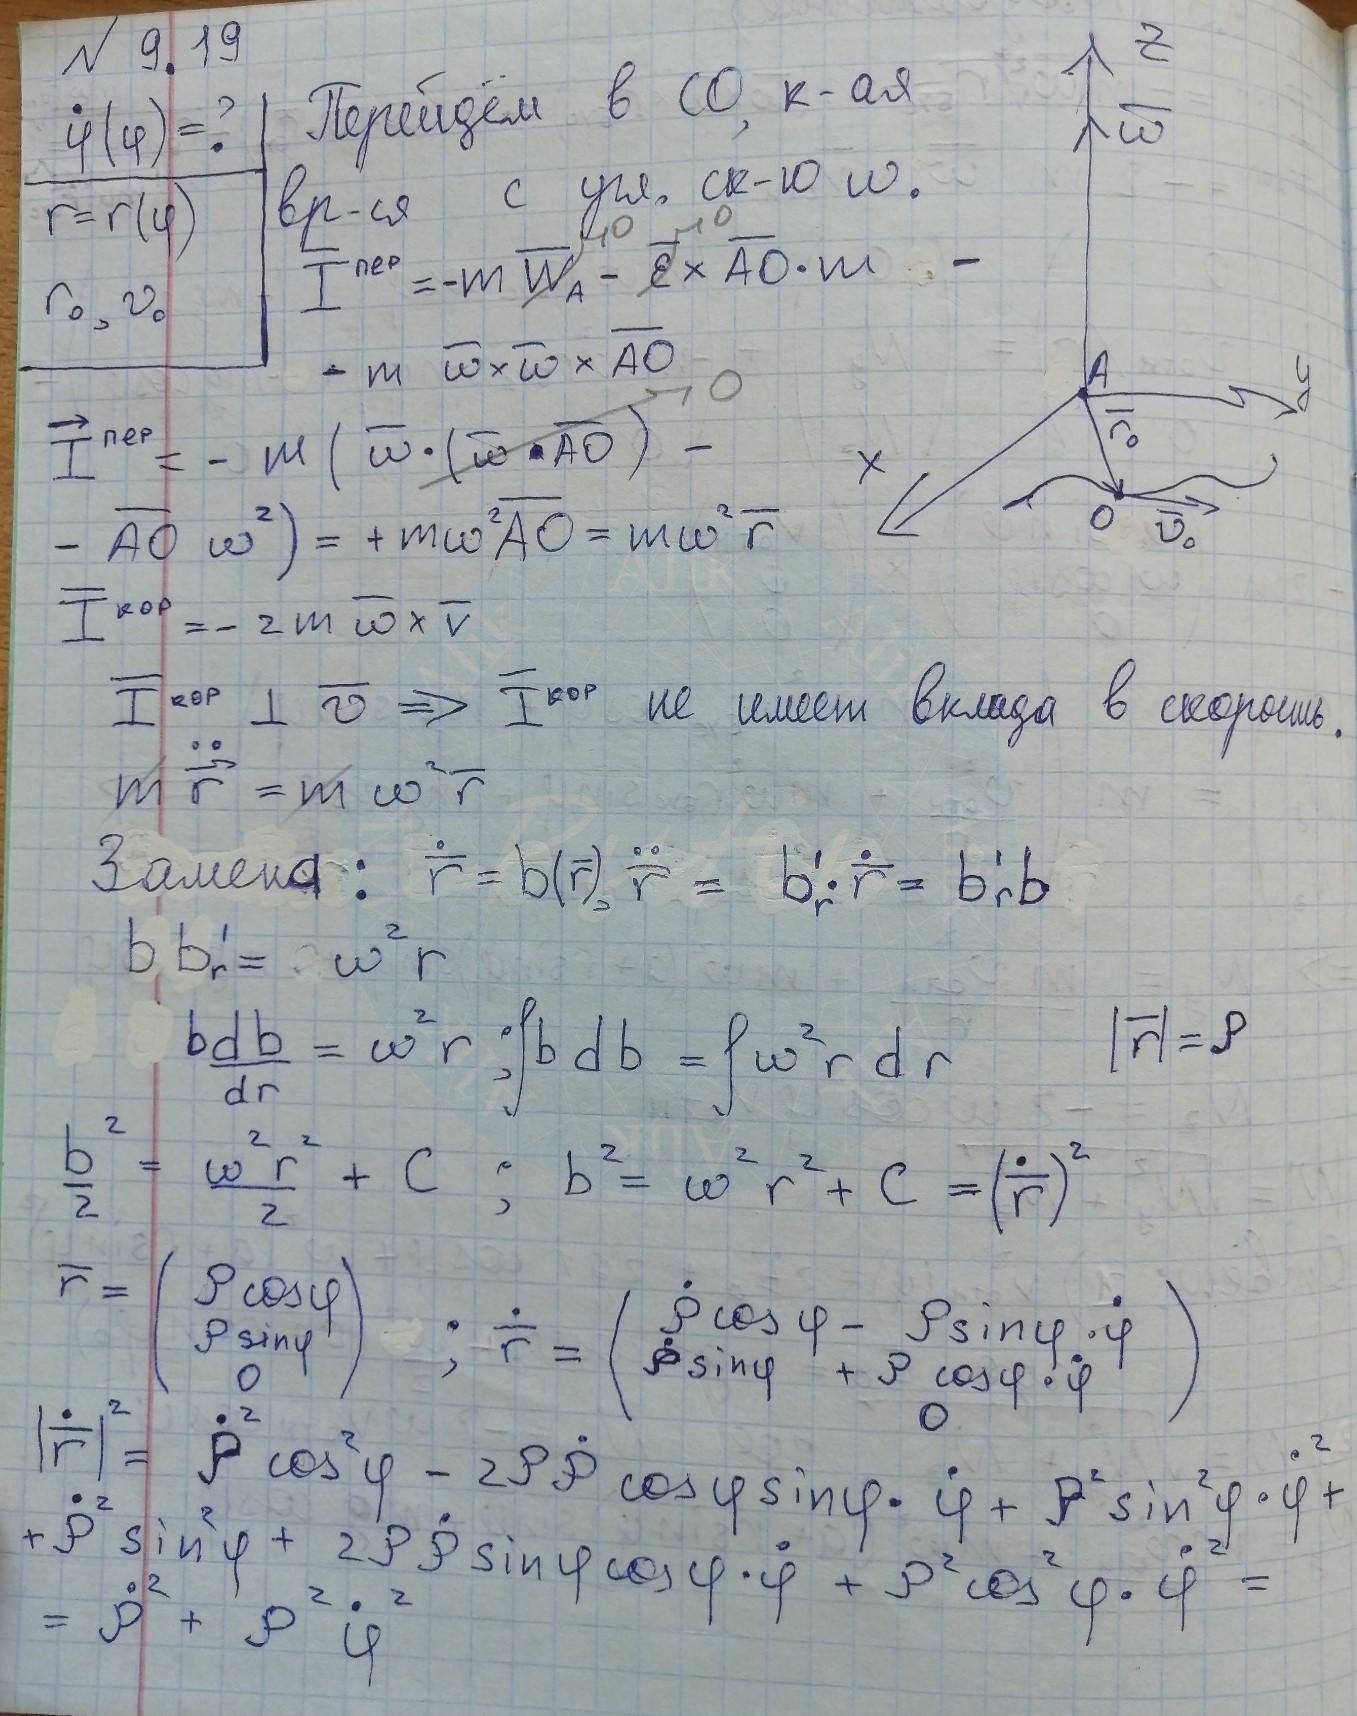 N 9.19
φ̇(φ)=?
r=r(φ)
r₀, v₀
Перейдём в СО, к-ая
вр-ся с угл. ск-ю ω.
I̅ᵖᵉᵖ = -m W̅_A →0 - ε̅ →0 × A̅O̅·m -
- m ω̅×ω̅×A̅O̅
I⃗ᵖᵉᵖ = - m (ω̅·(ω̅·A̅O̅) →0 -
- A̅O̅ ω²) = +mω²A̅O̅ = mω²r̅
I̅ᵏᵒᵖ = -2m ω̅×v̅
I̅ᵏᵒᵖ ⊥ v̅ ⇒ I̅ᵏᵒᵖ не имеет вклада в скорость.
m r̅̈ = m ω² r̅
Замена: r̅̇ = b(r̅), r̅̈ = b'ᵣ·r̅̇ = b'ᵣb
b b'ᵣ = ω² r
b db/dr = ω² r ; ∫b db = ∫ω² r dr
|r̅| = ρ
b²/2 = ω²r²/2 + C ; b² = ω² r² + C = (r̅̇)²
r̅ = (ρcosφ ρsinφ 0) ; r̅̇ = (ρ̇cosφ - ρsinφ·φ̇ ρ̇sinφ + ρcosφ·φ̇ 0)
|r̅̇|² = ρ̇² cos²φ - 2ρρ̇ cosφ sinφ·φ̇ + ρ² sin²φ·φ̇² +
+ρ̇² sin²φ + 2ρρ̇ sinφ cosφ·φ̇ + ρ² cos²φ·φ̇² =
= ρ̇² + ρ² φ̇²
z
ω̅
A
y
r̅₀
x
O
v̅₀